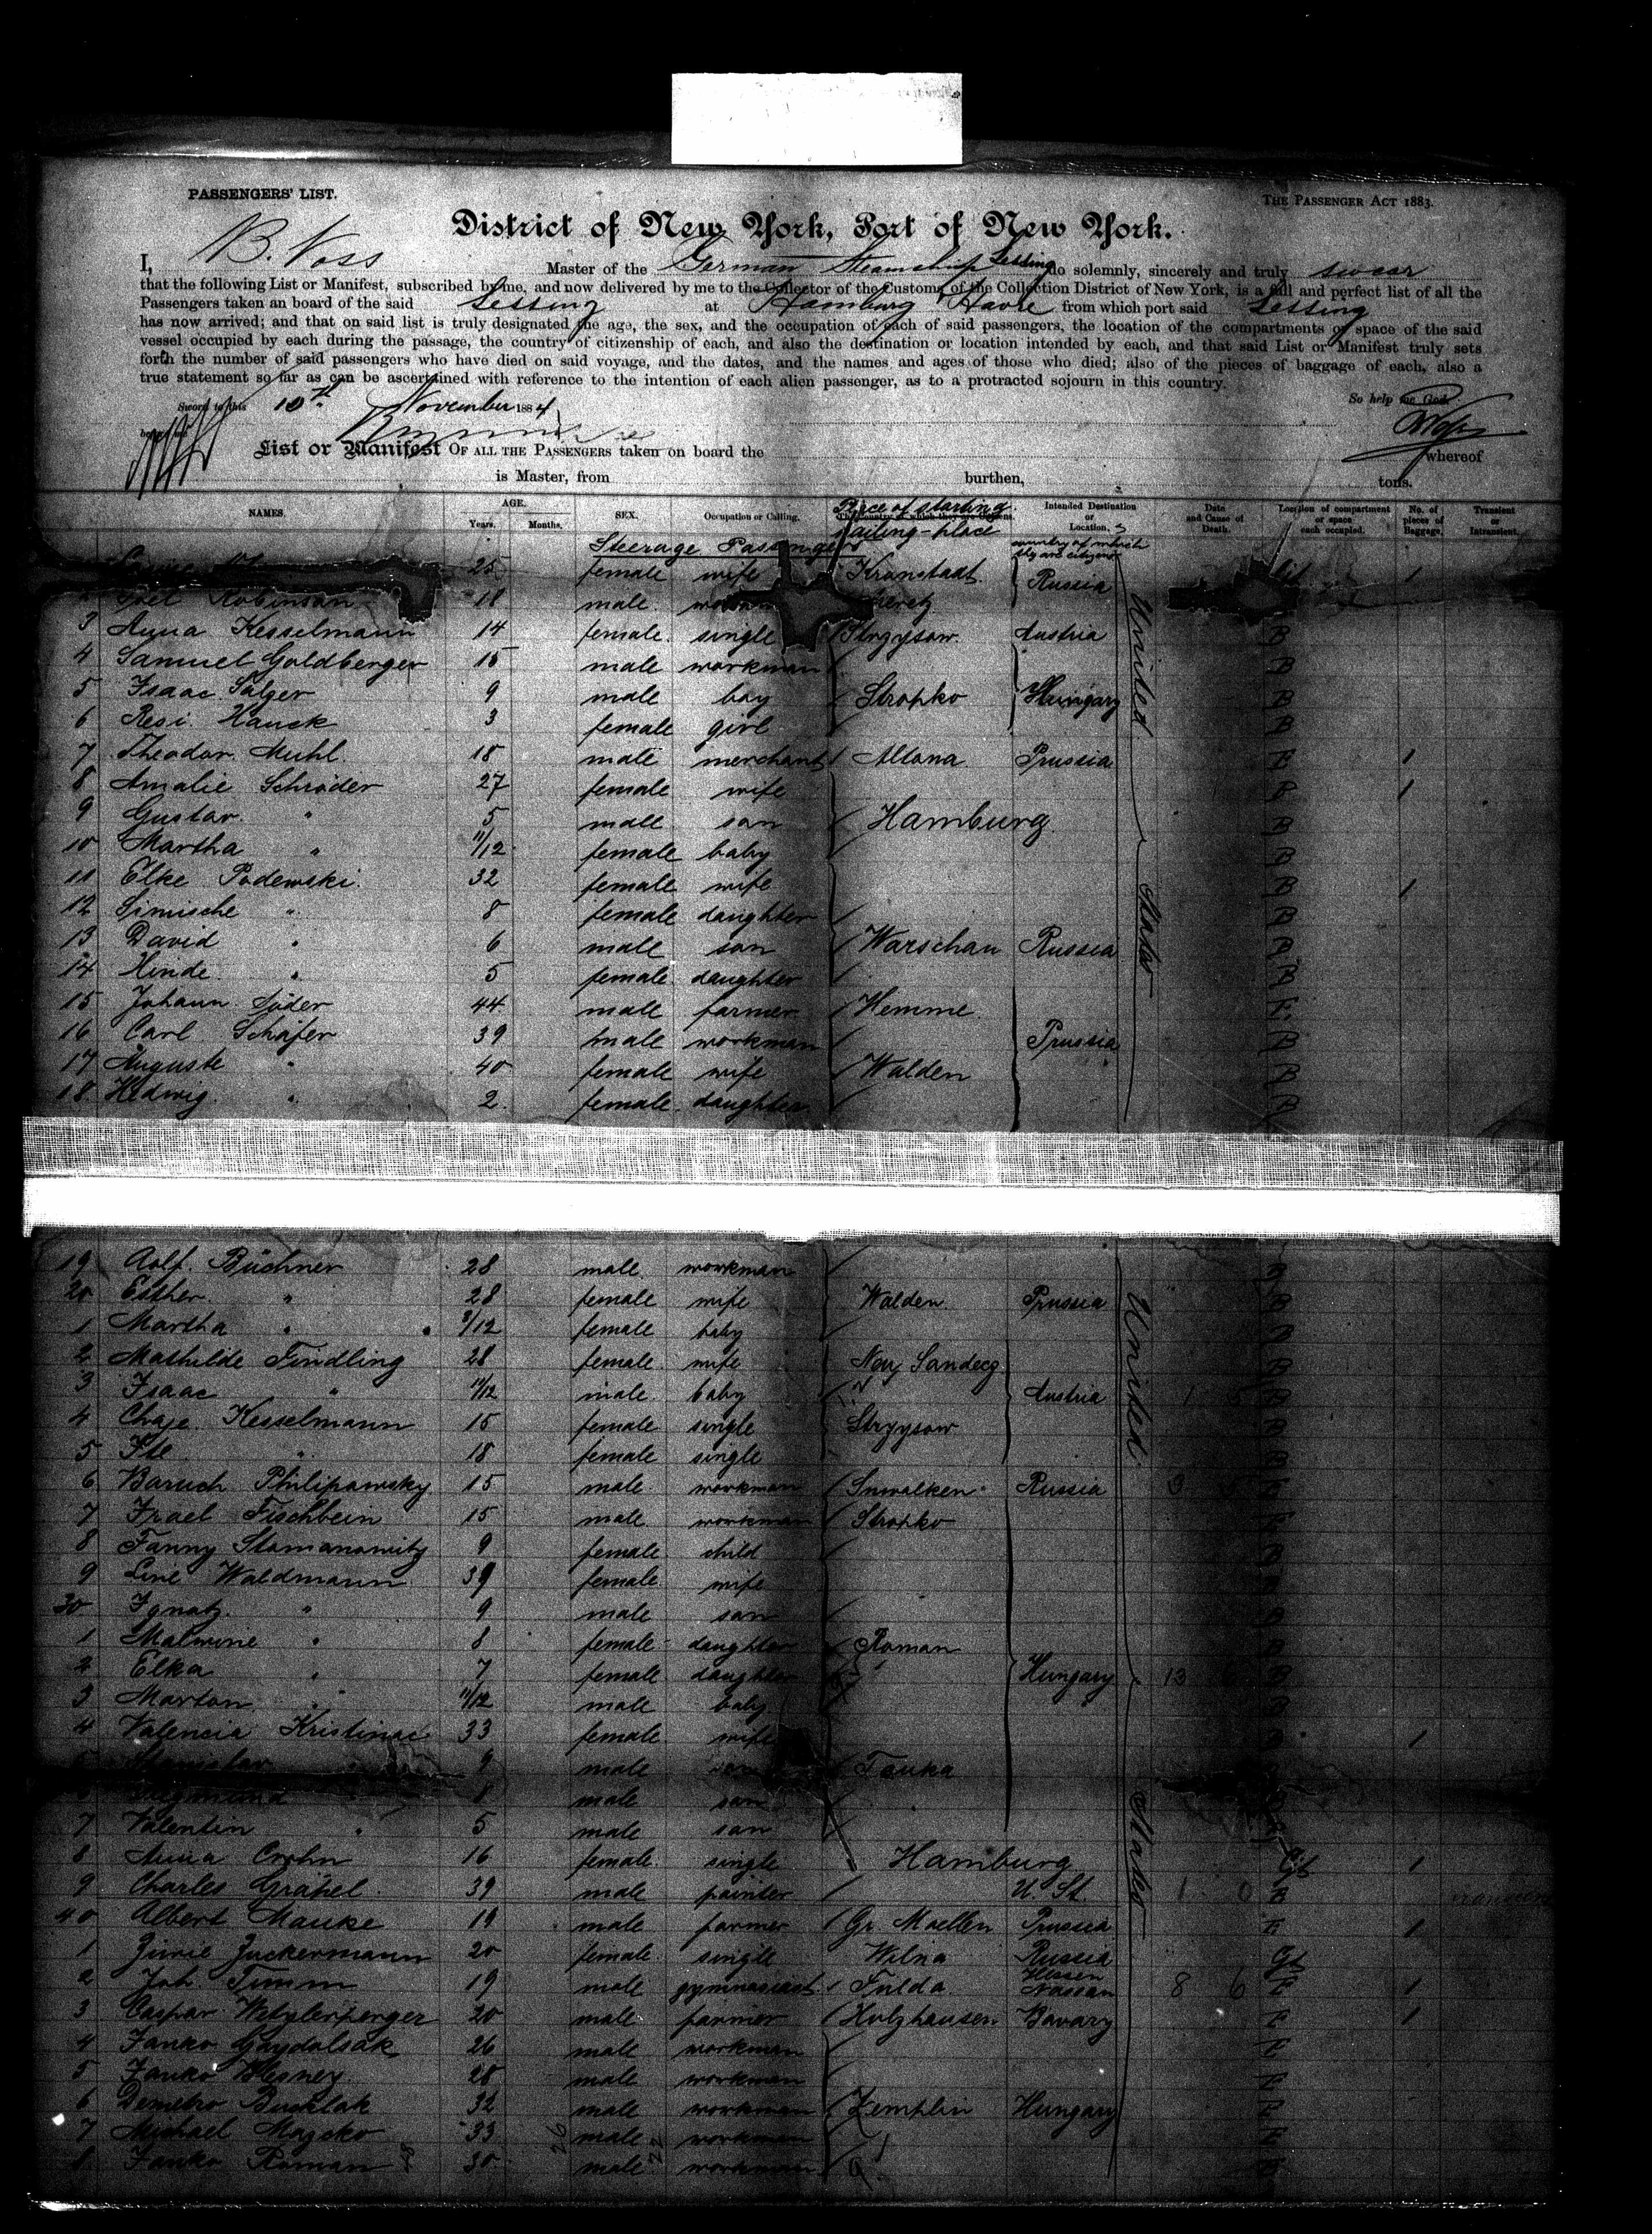 PASSENGERS' LIST.
THE PASSENGER ACT 1883.
District of New York, Port of New York.
I, B. Voss Master of the German Steamship Lessing do solemnly, sincerely and truly swear
that the following List or Manifest, subscribed by me, and now delivered by me to the Collector of the Customs of the Collection District of New York, is a full and perfect list of all the
Passengers taken an board of the said Lessing at Hamburg Havre from which port said Lessing
has now arrived; and that on said list is truly designated the age, the sex, and the occupation of each of said passengers, the location of the compartments or space of the said
vessel occupied by each during the passage, the country of citizenship of each, and also the destination or location intended by each, and that said List or Manifest truly sets
forth the number of said passengers who have died on said voyage, and the dates, and the names and ages of those who died; also of the pieces of baggage of each, also a
true statement so far as can be ascertained with reference to the intention of each alien passenger, as to a protracted sojourn in this country.
Sworn to this 10th November 1884 So help me God.
before me
List or Manifest OF ALL THE PASSENGERS taken on board the whereof
is Master, from burthen, tons.
NAMES. AGE. Years. Months. SEX. Occupation or Calling. Place of starting Intended Destination or Location, Date and Cause of Death. Location of compartment or space each occupied. No. of pieces of Baggage. Transient or Intransient.
Steerage Passengers sailing-place country of which they are citizens
25 female wife Kronstadt Russia 1
Robinson 18 male
3 Anna Kesselmann 14 female single Strzysow Austria B
4 Samuel Goldberger 15 male workman B
5 Isaac Salzer 9 male boy Stropko Hungary B
6 Resi Hauck 3 female girl B
7 Theodor Muhl 18 male merchant Altona Prussia E 1
8 Amalie Schröder 27 female wife B 1
9 Gustav " 5 male son Hamburg B
10 Martha " 11/12 female baby B
11 Elke Podewski 32 female wife B 1
12 Simische " 8 female daughter B
13 David " 6 male son Warschau Russia B
14 Hinde " 5 female daughter B
15 Johann Söder 44 male farmer Hemme E
16 Carl Schäfer 39 male workman Prussia B
17 Auguste " 40 female wife Walden B
18 Hedwig " 2 female daughter B
United States
19 Adlf. Büchner 28 male workman B
20 Esther " 28 female wife Walden Prussia B
1 Martha " /12 female baby B
2 Mathilde Findling 28 female wife Neu Sandecz B
3 Isaac " 11/12 male baby " Austria B
4 Chaje Kesselmann 15 female single Strzysow B
5 Ite " 18 female single B
6 Baruch Philipawsky 15 male workman Suwalken Russia E
7 Israel Fischbein 15 male workman Stropko E
8 Fanny Stamanowitz 9 female child B
9 Line Waldmann 39 female wife B
30 Ignatz " 9 male son B
1 Malwine " 8 female daughter Roman B
2 Elka " 7 female daughter Hungary 13 B
3 Marton " 11/12 male baby B
4 Valencia Kristinac 33 female wife B 1
5 Stanislav " 9 male son Tauka
8 male son
7 Valentin " 5 male son
8 Anna Crohn 16 female single Hamburg 1
9 Charles Grahel 39 male painter U. St. 1 0 B
40 Albert Mauke 19 male farmer Gr. Moellen Prussia E 1
1 Ziwie Zuckermann 20 female single Wilna Russia
2 Joh. Timm 19 male gymnasiast Fulda Hessen Nassau 8 6 E 1
3 Caspar Wetzlerperger 20 male farmer Holzhausen Bavary E 1
4 Janko Gaydolsak 26 male workman E
5 Janko Blesney 28 male workman E
6 Demetro Bucklak 32 male workman Zemplin Hungary E
7 Michael Mazcko 33 male workman E
8 Janko Roman 30 male workman E
United States